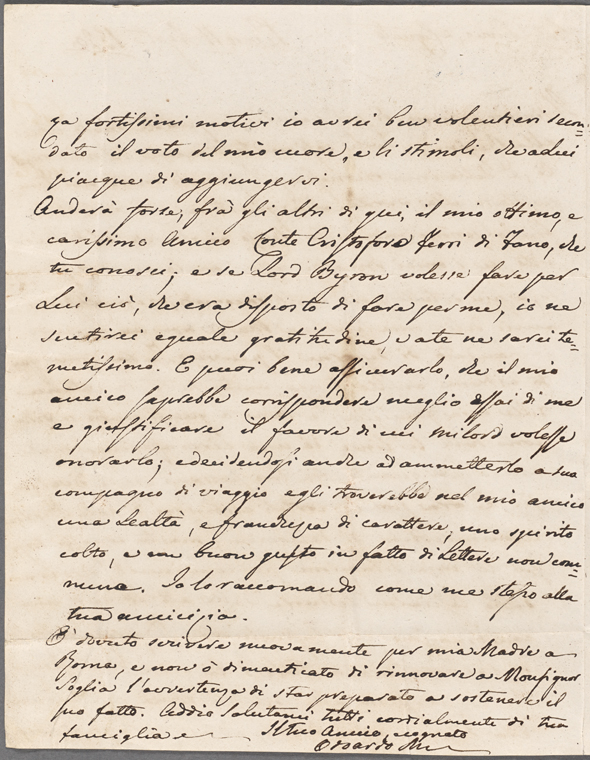 za fortissimi motivi io avrei ben volentieri secon=
dato il voto del mio cuore, e li stimoli, che a lui
piacque di aggiungervi.
Anderà forse, frà gli altri di qui, il mio ottimo, e
carissimo Amico Conte Cristoforo Ferri di Fano, che
tu conosci; e se Lord Byron volesse fare per
Lui ciò, che era disposto di fare per me, io ne
sentirei eguale gratitudine, e a te ne sarei te=
netissimo. E puoi bene assicurarlo, che il mio
amico saprebbe corrispondere meglio assai di me
e giustificare il favore di cui milord volesse
onorarlo; e decidendosi anche ad ammetterlo a suo
compagno di viaggio egli troverebbe nel mio amico
una Lealtà, e franchezza di carattere, uno spirito
colto, e un buon gusto in fatto di Lettere non com=
mune. Io lo raccomando come me stesso alla
tua amicizia.
È dovuto scrivere nuovamente per mia Madre a
Roma, e non ò dimenticato di rinnovare a Monsignor
Soglia l'avvertenza di star preparato a sostenere il
suo fatto. Addio Salutami tutti cordialmente di tua
famiglia e
Il tuo Amico, e cognato
Odoardo